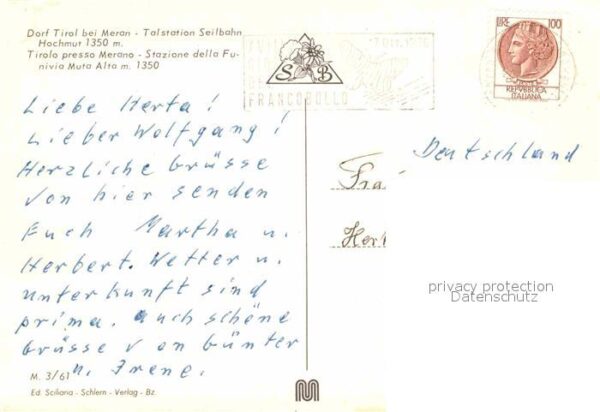 Dorf Tirol bei Meran - Talstation Seilbahn
Hochmut 1350 m.
Tirolo presso Merano - Stazione della Fu-
nivia Muta Alta m. 1350
S B
FRANCOBOLLO
LIRE 100
REPVBBLICA
ITALIANA
Liebe Herta!
Lieber Wolfgang!
Herzliche Grüsse
von hier senden
Euch Martha u.
Herbert. Wetter u.
Unterkunft sind
prima. Auch schöne
Grüsse von Günter
u. Irene.
Deutschland
Her
privacy protection
Datenschutz
M. 3/61
Ed. Sciliana - Schlern - Verlag - Bz.